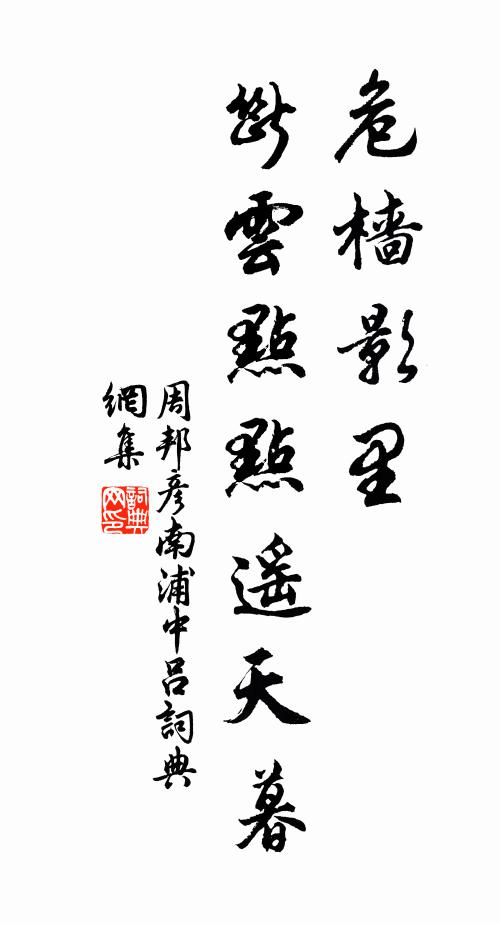 危檣影里
斷雲點點遥天暮
周邦彦南浦中吕詞典
網集
詞典
网印